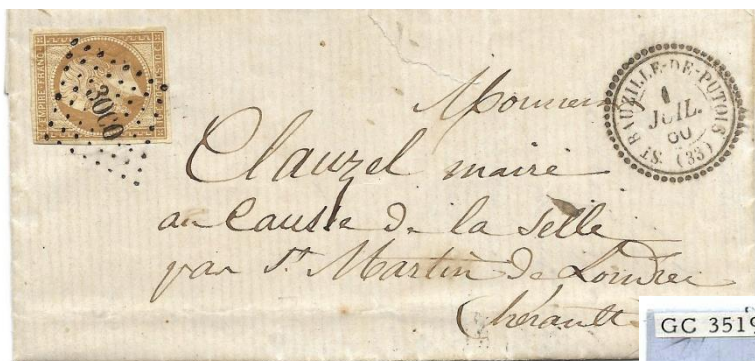 EMPIRE FRANC
3060
ST BAUZILLE-DE-PUTOIS (33)
1
JUIL.
60
Monsieur
Clauzel maire
au Causse de la Selle
par St. Martin de Londres
hérault
GC 3519